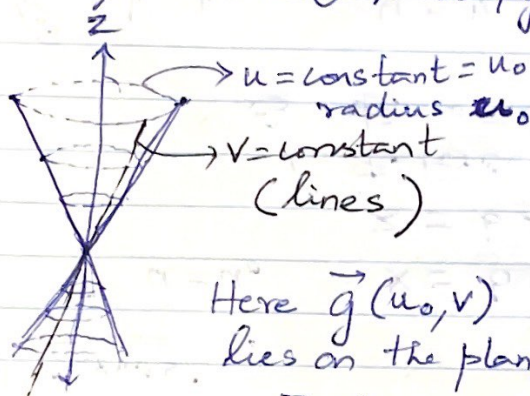 Z
u = constant = u₀
radius u₀
V = constant
(lines)
Here g⃗ (u₀, v)
lies on the plan